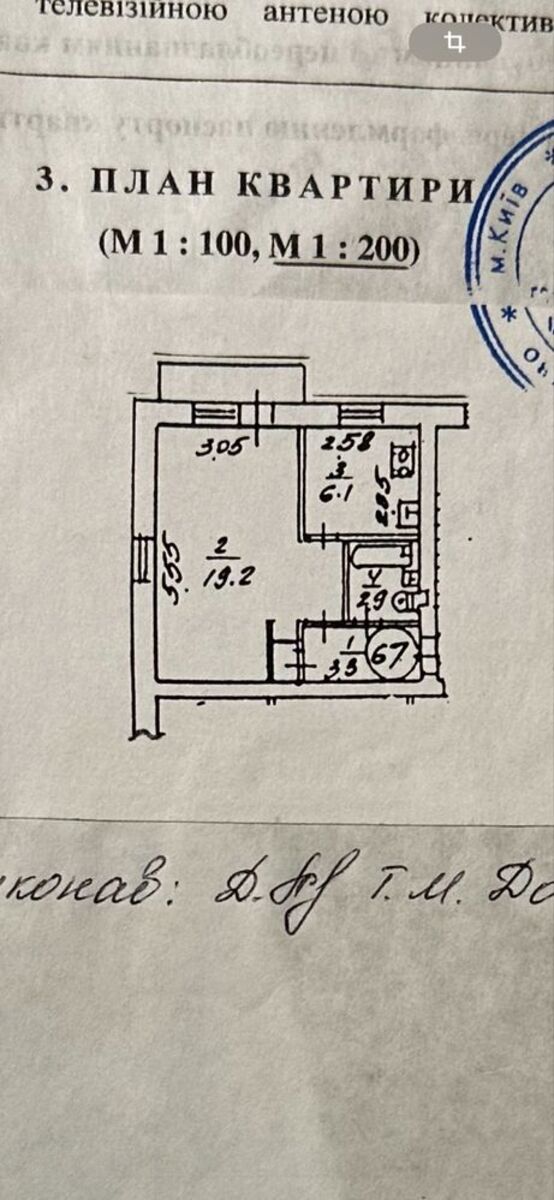 телевізійною антеною колектив
3. ПЛАН КВАРТИРИ
(М 1 : 100, М 1 : 200)
м. Київ
3.05
2.58
3
6.1
2.05
5.55
2
19.2
4
2.9
1
3.3
67
конав: Т. М. До